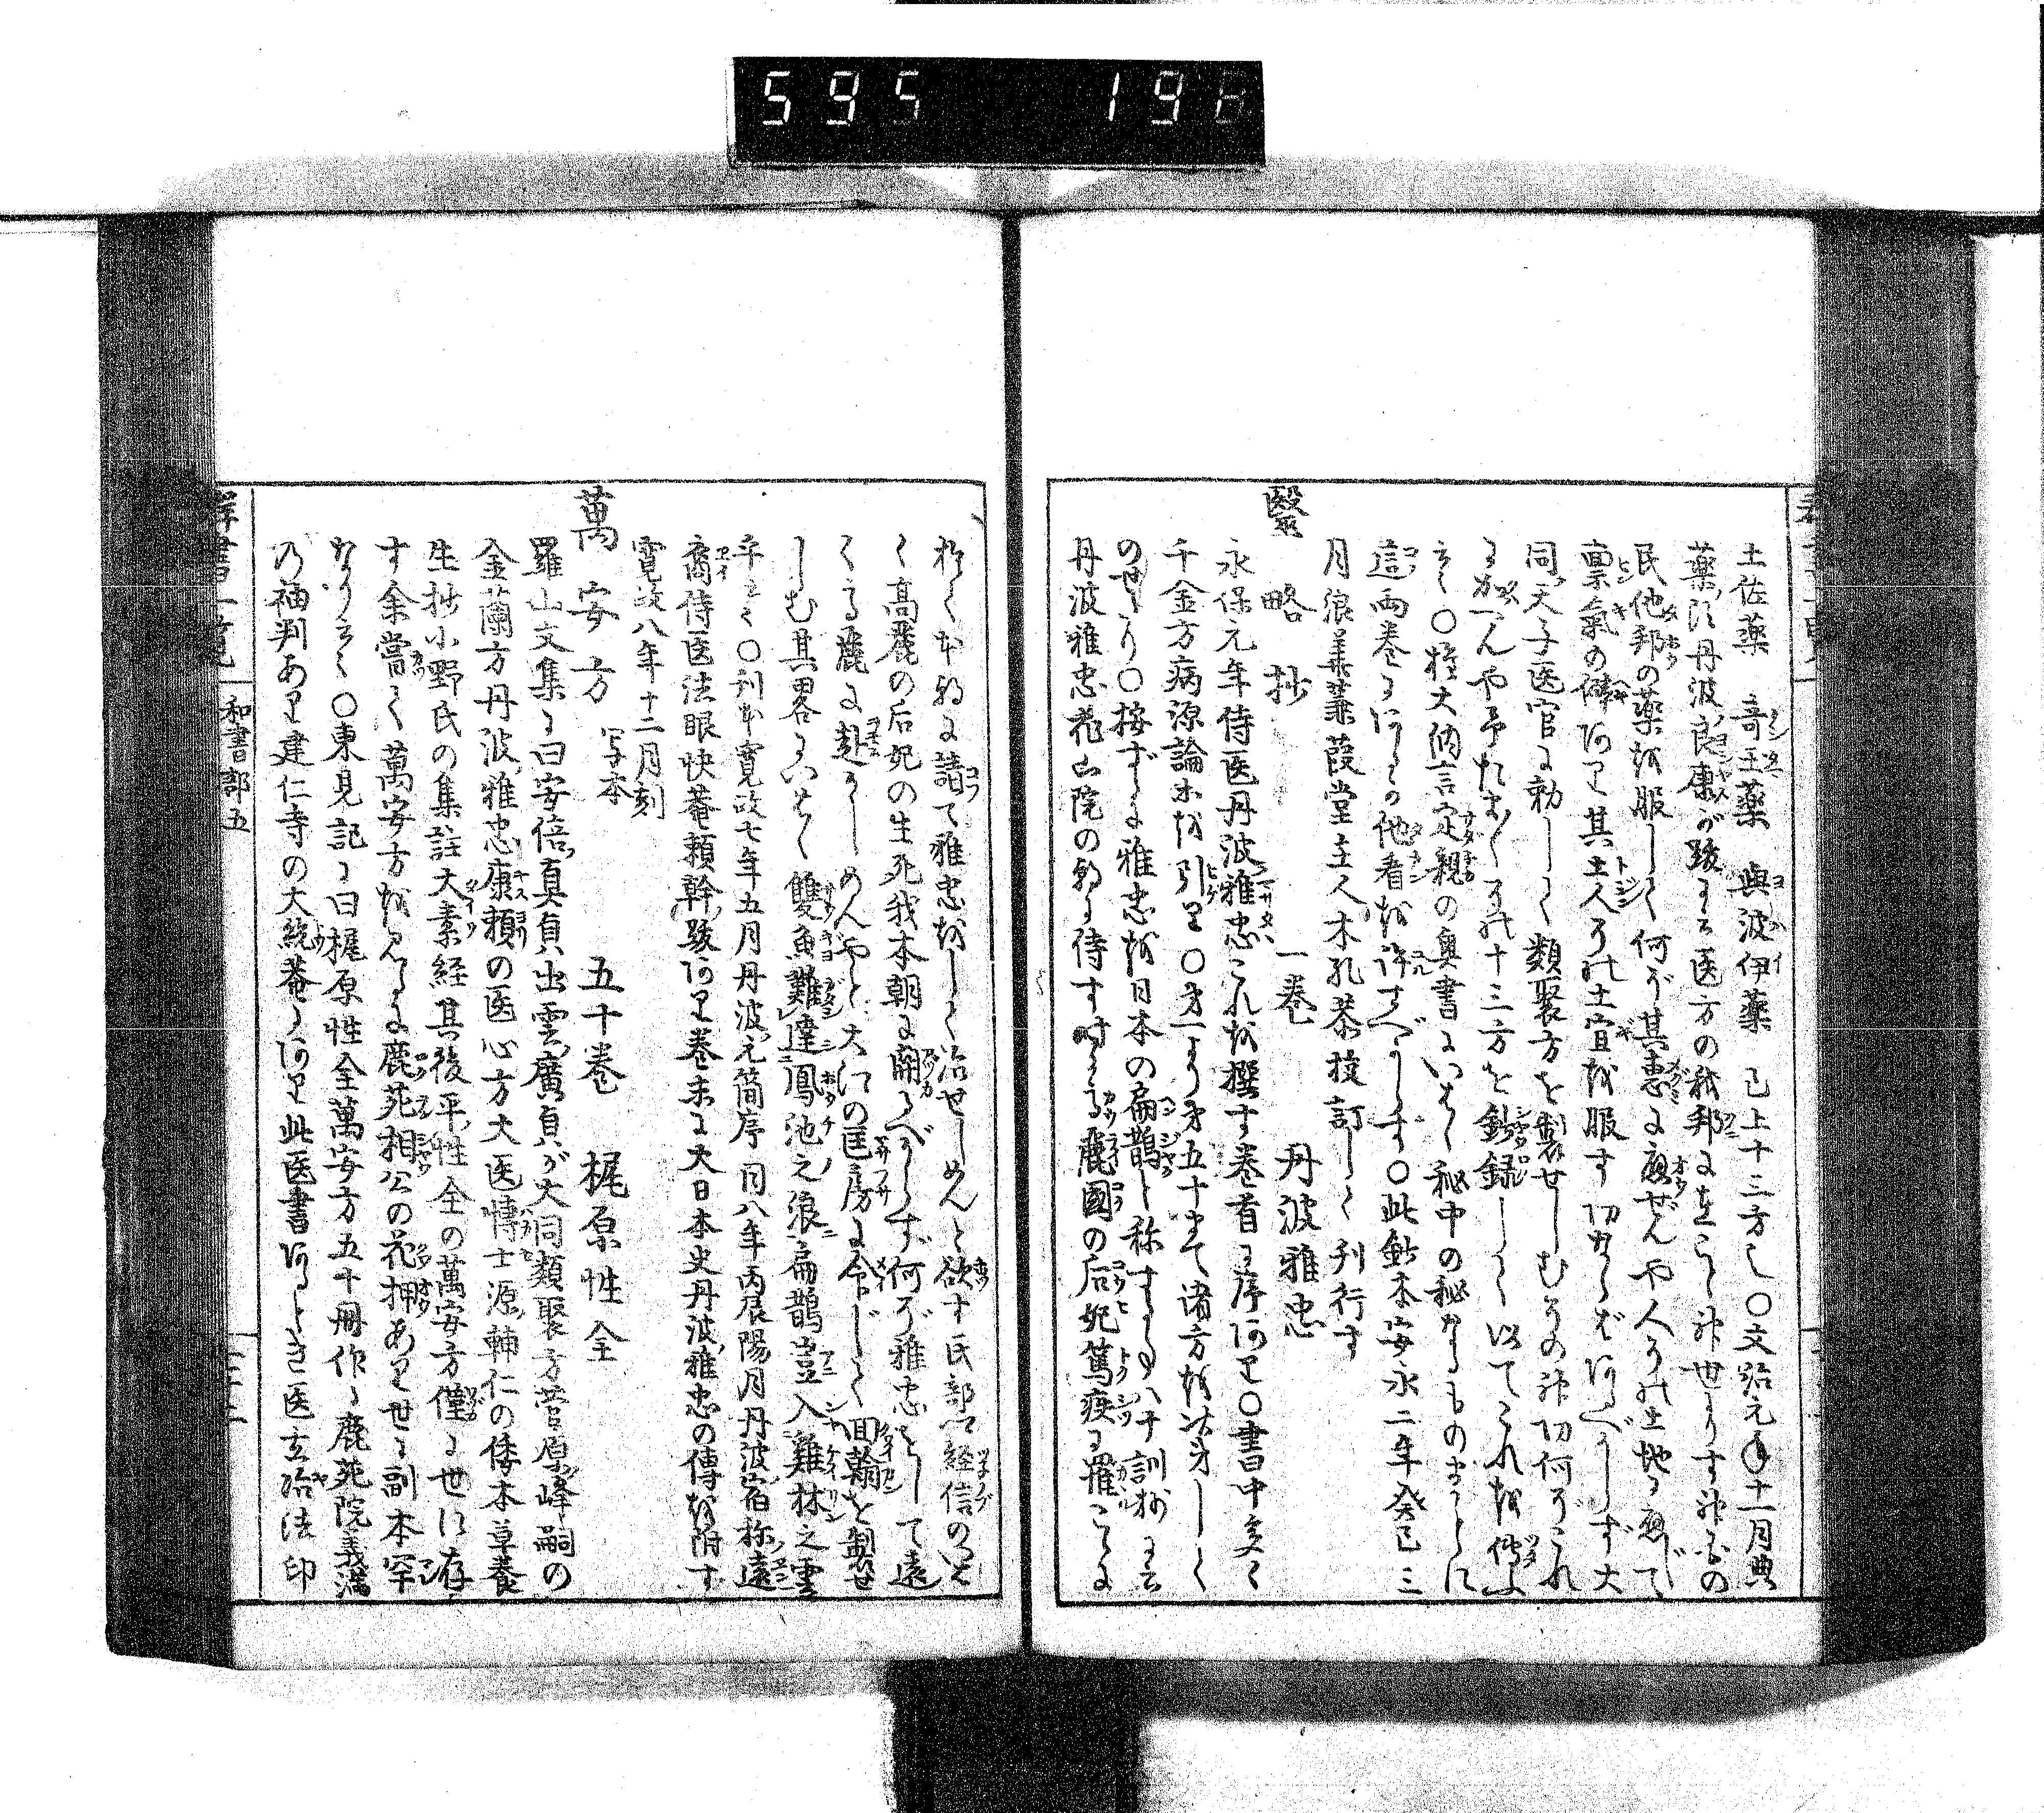 595 191
土佐薬 奇王薬 與波伊薬 已上十三方也〇文治元年十一月典
薬頭丹波良康が跋に云医方の我邦に在こと神世よりす神而の
民他邦の薬を服して何ぞ其恵に應ぜんや人々の土地に應じて
禀氣の偉あり其土人その土宜を服す切ならずばあるべからず大
同天子医官に勅して類聚方を製せしむその神功何ぞこれ
にかへんや予たま〳〵その十三方を鈔録して以てこれを傳ふ
云〻〇権大納言定親の奥書にいはく秘中の秘なるものまことに
這両巻にあるの他看を許すべからず〇此鈔本安永二年癸巳三
月浪華蒹葭堂主人木孔恭校訂して刊行す
醫略抄 一巻 丹波雅忠
永保元年侍医丹波雅忠これを撰す巻首に序あり〇書中多く
千金方病源論等を引り〇第一より第五十まで諸方を次第して
のせたり〇按ずるに雅忠を日本の扁鵲と称する事八十訓抄に云
丹波雅忠花山院の朝に侍す時に高麗國の后妃篤疾に罹ことに
於て本朝に請て雅忠をして治せしめんと欲す民部卿経信のいは
く高麗の后妃の生死我本朝に関るべからず何ぞ雅忠をして遠
く高麗に赴かしめんやと大江の匡房に命じて回翰を製せ
しむ其畧にいはく雙魚難達鳳池之浪扁鵲豈入雞林之雲
乎云〻〇刊本寛政七年五月丹波元簡序同八年丙辰陽月丹波宿祢遠
裔侍医法眼快菴頼幹跋あり巻末に大日本史丹波雅忠の傳を附す
寛政八年十二月刻
萬安方 写本 五十巻 梶原性全
羅山文集に曰安倍真貞出雲廣貞が大同類聚方菅原峰嗣の
金蘭方丹波雅忠康頼の医心方大医博士源輔仁の倭本草養
生抄小野氏の集註大素経其後平性全の萬安方僅に世に存
す余嘗て萬安方を見るに鹿苑相公の花押あり世に副本罕
なり云〻〇東見記に曰梶原性全萬安方五十冊作る鹿苑院義満
の袖判あり建仁寺の大統菴にあり此医書あるとき医玄冶法印
群書一覧 和書部五